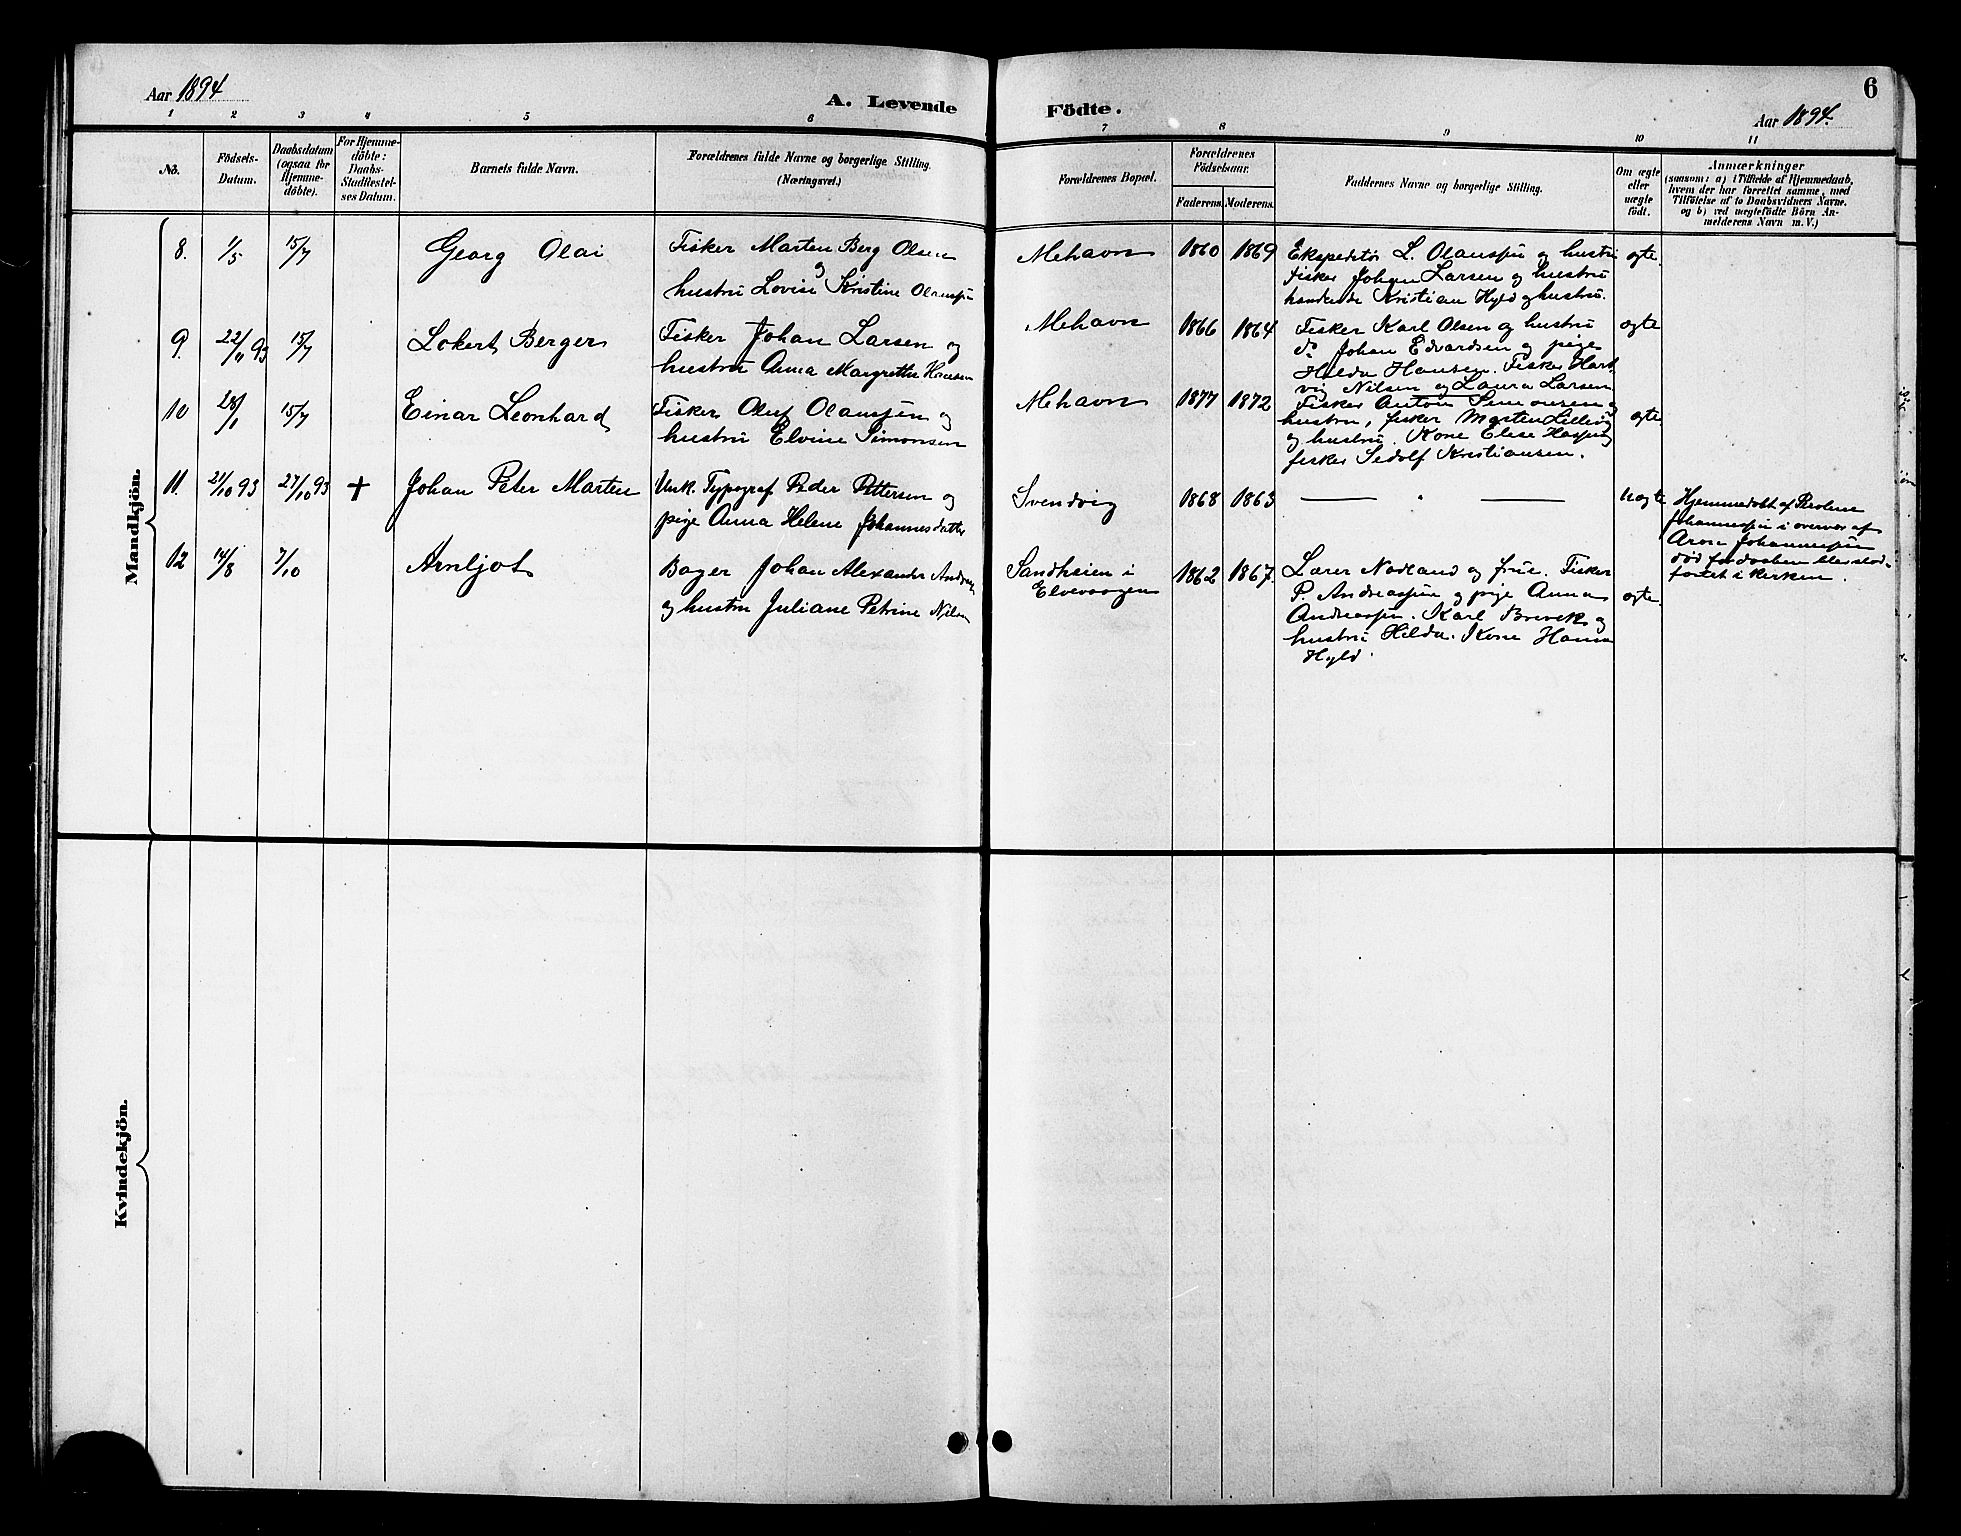 Aar 1894
A. Levende Födte.
Aar 1894.
6
1 2 3 4 5 6 7 8 9 10 11
No.
Födsels-
Datum.
Daabsdatum
(ogsaa for
Hjemme-
döbte).
For Hjemme-
döbte:
Daabs-
Stadfæstel-
ses Datum.
Barnets fulde Navn.
Forældrenes fulde Navne og borgerlige Stilling.
(Næringsvei.)
Forældrenes Bopæl.
Forældrenes
Födselsaar.
Faderens. Moderens.
Faddernes Navne og borgerlige Stilling.
Om ægte
eller
uægte
født.
Anmærkninger
(saasom: a) i Tilfælde af Hjemmedaab,
hvem der har forrettet samme, med
Tilföielse af to Daabsvidners Navne.
og b) ved uægtefödte Börn An-
melderens Navn m. V.)
Mandkjön.
8. 1/5 15/7 Georg Olai
Fisker Marten Berg Olsen
og
hustru Lovise Kristine Olaussen
Mehavn 1860 1869
Ekspeditør L. Olaussen og hustru
fisker Johan Larsen og hustru
handlende Kristian Hyld og hustru.
ægte.
9. 22/11 93 15/7 Lokert Berger
Fisker Johan Larsen og
hustru Anna Margrethe Hansen
Mehavn 1866 1864
Fisker Karl Olsen og hustru
do Johan Edvardsen og pige
Hilda Hansen. Fisker Hart
vig Nilsen og Laura Larsen
ægte
10 28/1 15/7 Einar Leonhard
Fisker Oluf Olaussen og
hustru Elvine Simonsen
Mehavn 1877 1872
Fisker Anton Simonsen og
hustru, fisker Morten Lillevig
og hustru. Kone Elise
fisker Sedolf Kristiansen.
ægte
11. 21/10 93 27/10 93 + Johan Peter Marten
Unk. Typograf Peder Pettersen og
pige Anna Helene Johannesdatter
Svendvig 1868 1863
— " —
uægte
Hjemmedøbt af
Johannessen i overvær af
Aron Johannessen
død før daaben blev stad-
fæstet i kirken.
12 14/8 7/10 Arnljot
Bager Johan Alexander
og hustru Juliane Petrine Nilsen
Sandheien i
Elvevaagen
1862 1867.
Lærer Nodland og frue. Fisker
P. Andreassen og pige Anna
Andreassen. Karl Brevek og
hustru Hilda. Kone Hanna
Hyld.
ægte.
Kvindekjön.